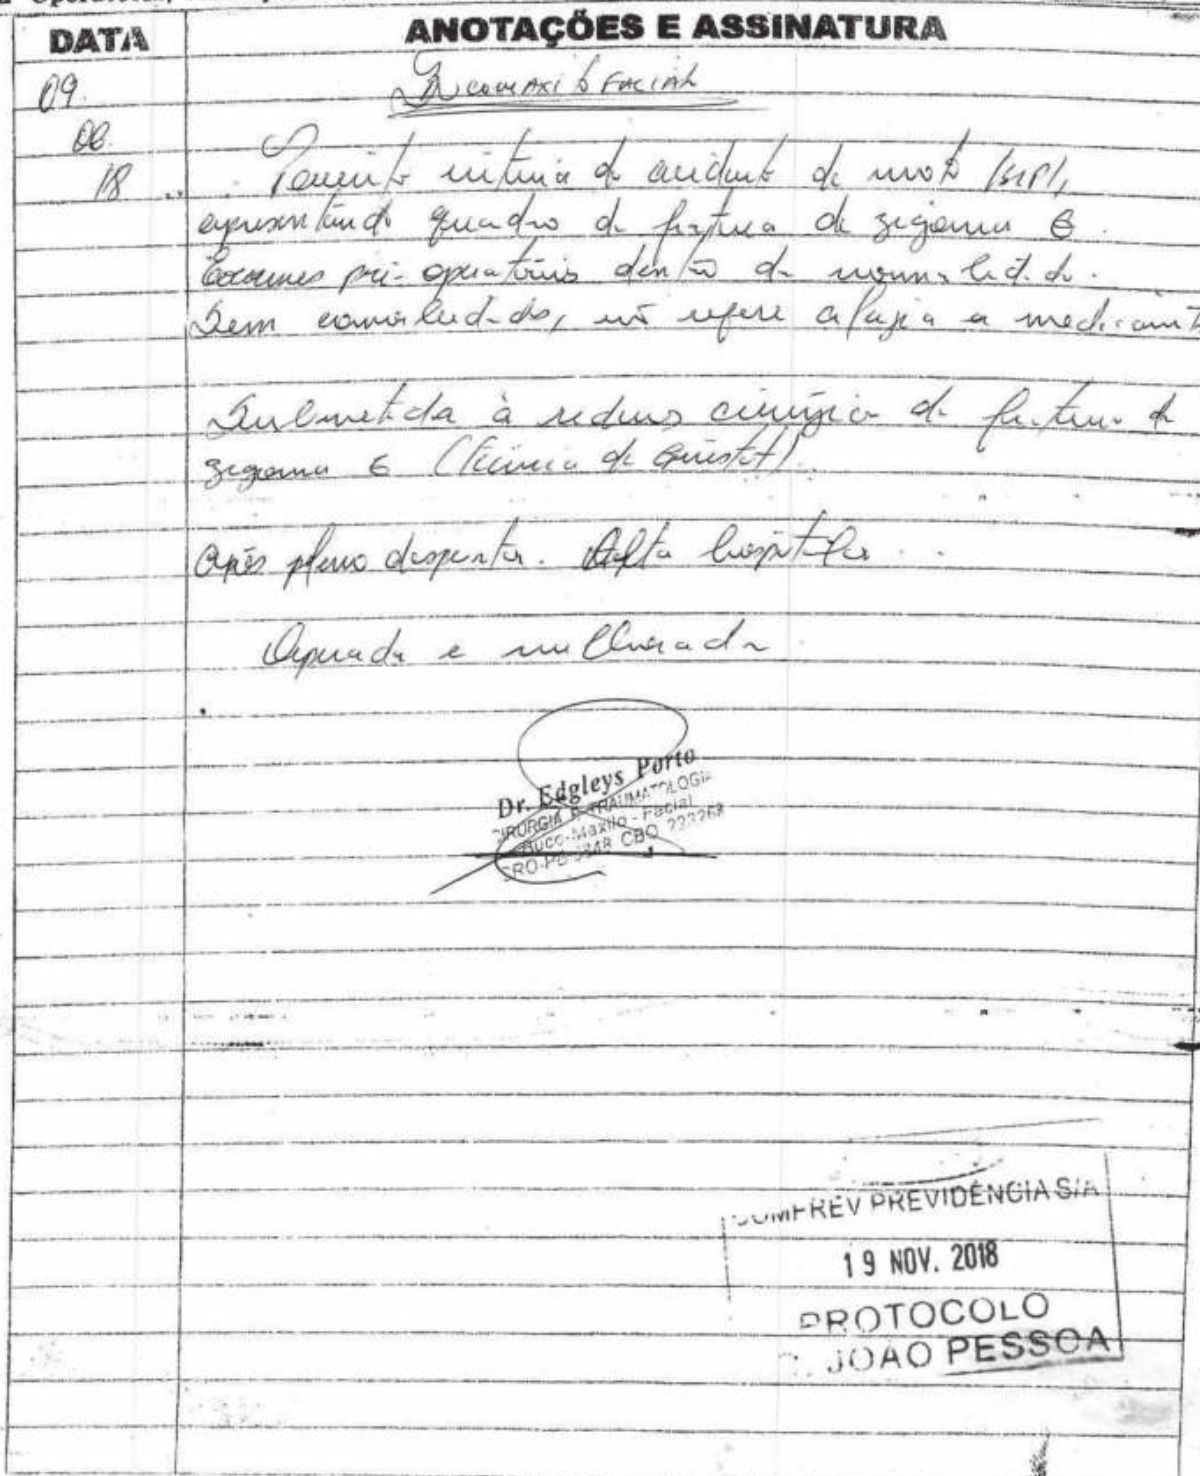 DATA
ANOTAÇÕES E ASSINATURA
09.
Bucomaxilofacial
06.
18
Paciente vítima de acidente de moto (SIP),
apresentando quadro de fratura de zigoma E.
Exames pré-operatórios dentro da normalidade.
Sem comorbidades, não refere alergia a medicamento
Submetida à redução cirúrgica de fratura de
zigoma E (Técnica de Ginestet).
Após pleno despertar. Alta hospitalar
Operada e melhorada
Dr. Edgleys Porto
CIRURGIA E TRAUMATOLOGIA
Buco-Maxilo-Facial
CRO-PB CBO 223268
COMPREV PREVIDÊNCIA S/A
19 NOV. 2018
PROTOCOLO
JOÃO PESSOA